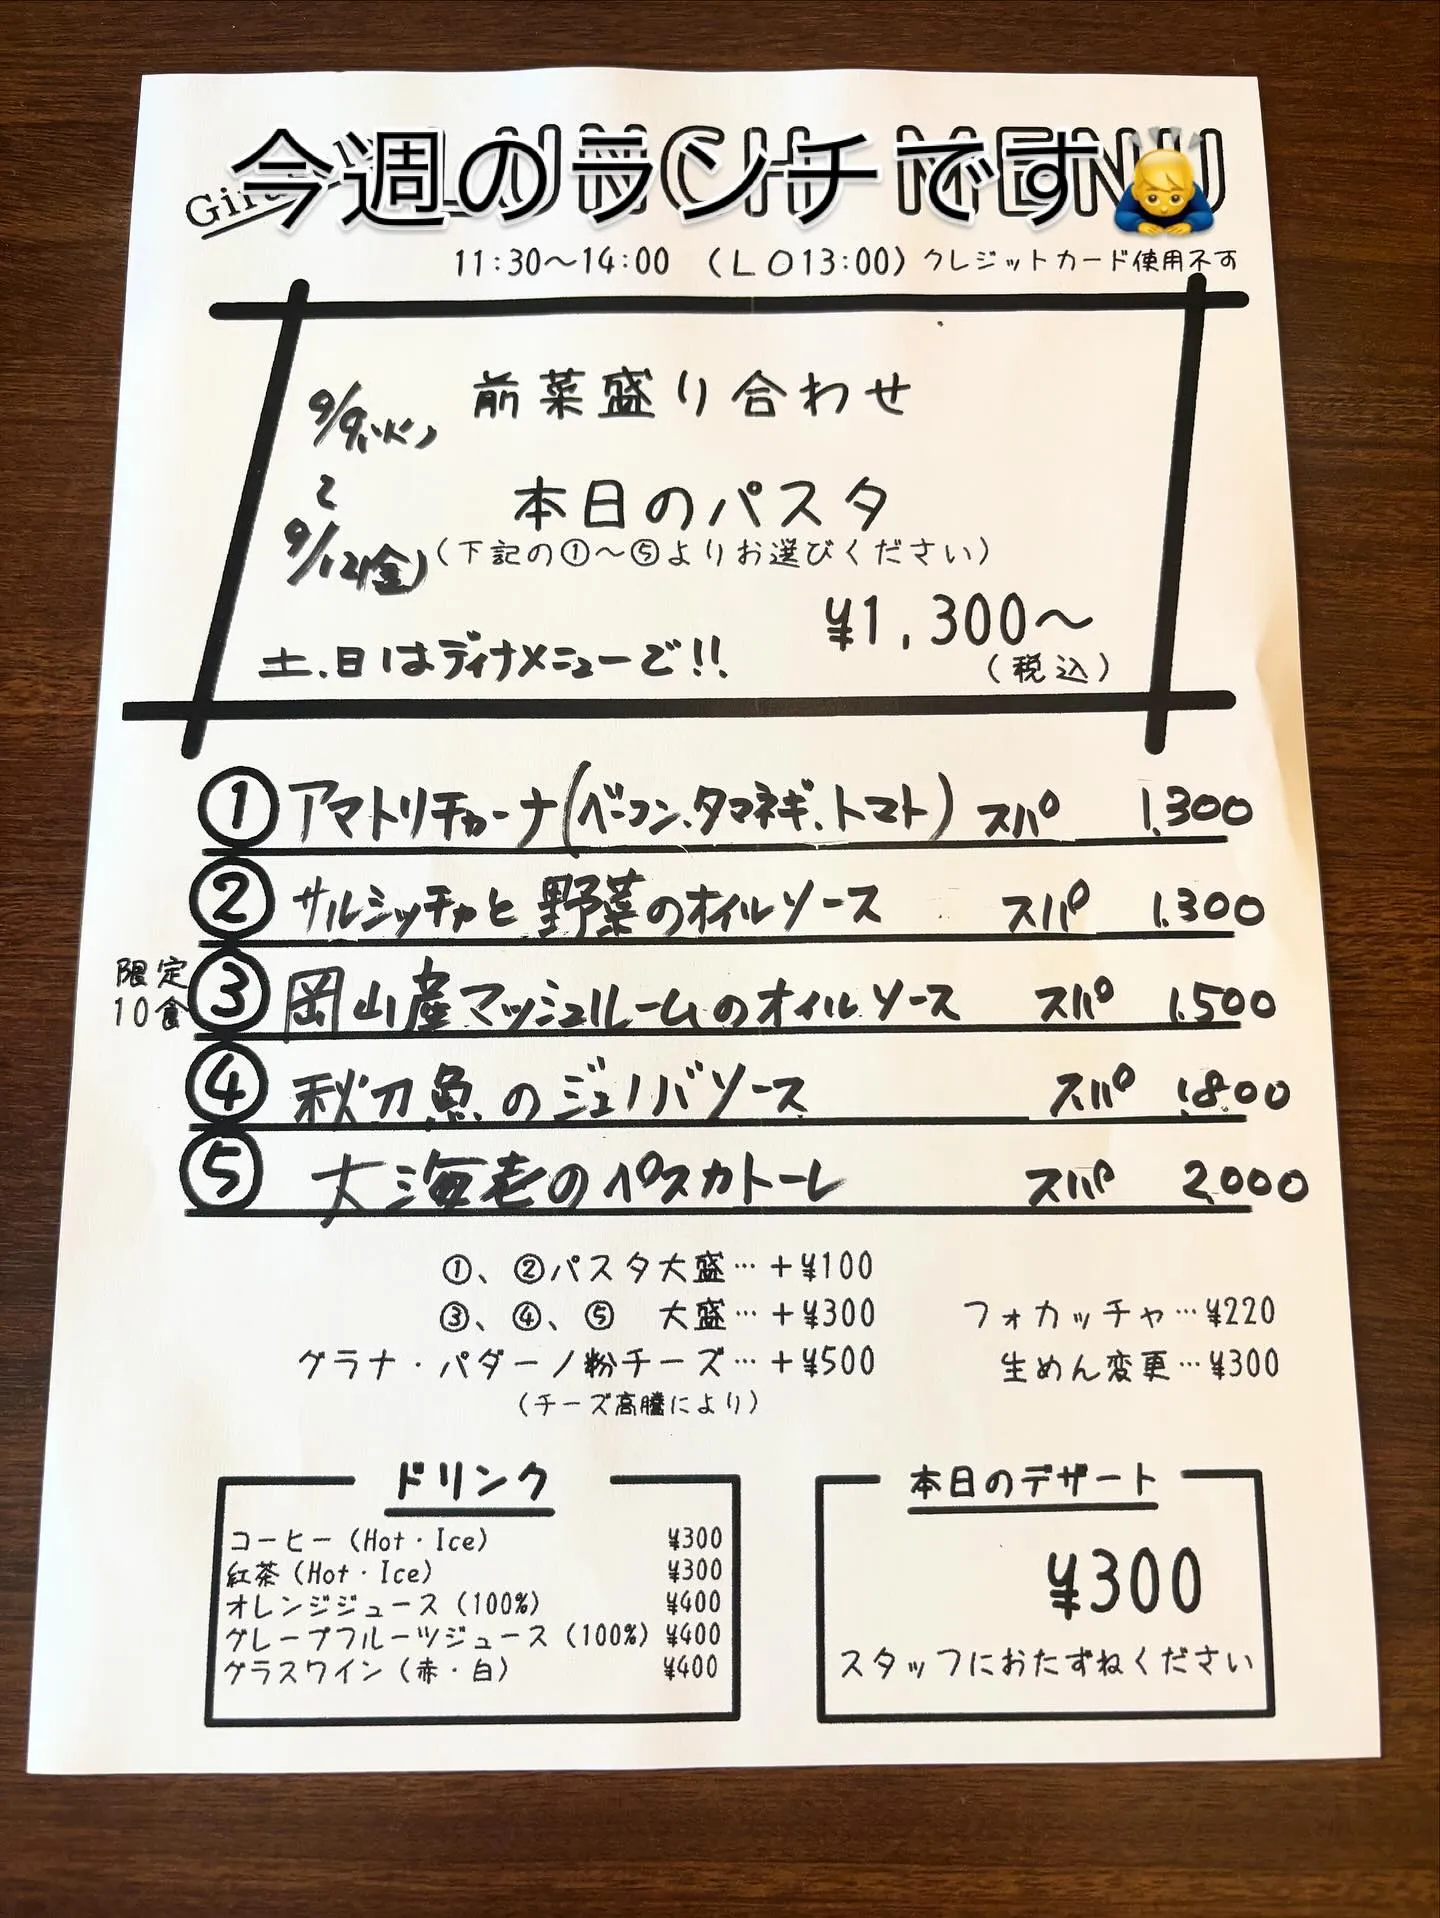 今週のランチです🙇
LUNCH MENU
11:30〜14:00 (LO13:00) クレジットカード使用不可
前菜盛り合わせ
9/9(火)
〜
9/12(金)
本日のパスタ
(下記の①〜⑤よりお選びください)
¥1,300〜
(税込)
土.日はディナメニューで!!
① アマトリチャーナ(ベーコン、タマネギ、トマト) スパ 1,300
② サルシッチャと野菜のオイルソース スパ 1,300
限定10食 ③ 岡山産マッシュルームのオイルソース スパ 1,500
④ 秋刀魚のジェノバソース スパ 1,800
⑤ 大海老のペスカトーレ スパ 2,000
①、②パスタ大盛…+¥100
③、④、⑤ 大盛…+¥300 フォカッチャ…¥220
グラナ・パダーノ粉チーズ…+¥500 生めん変更…¥300
(チーズ高騰により)
ドリンク
コーヒー(Hot・Ice) ¥300
紅茶(Hot・Ice) ¥300
オレンジジュース(100%) ¥400
グレープフルーツジュース(100%) ¥400
グラスワイン(赤・白) ¥400
本日のデザート
¥300
スタッフにおたずねください